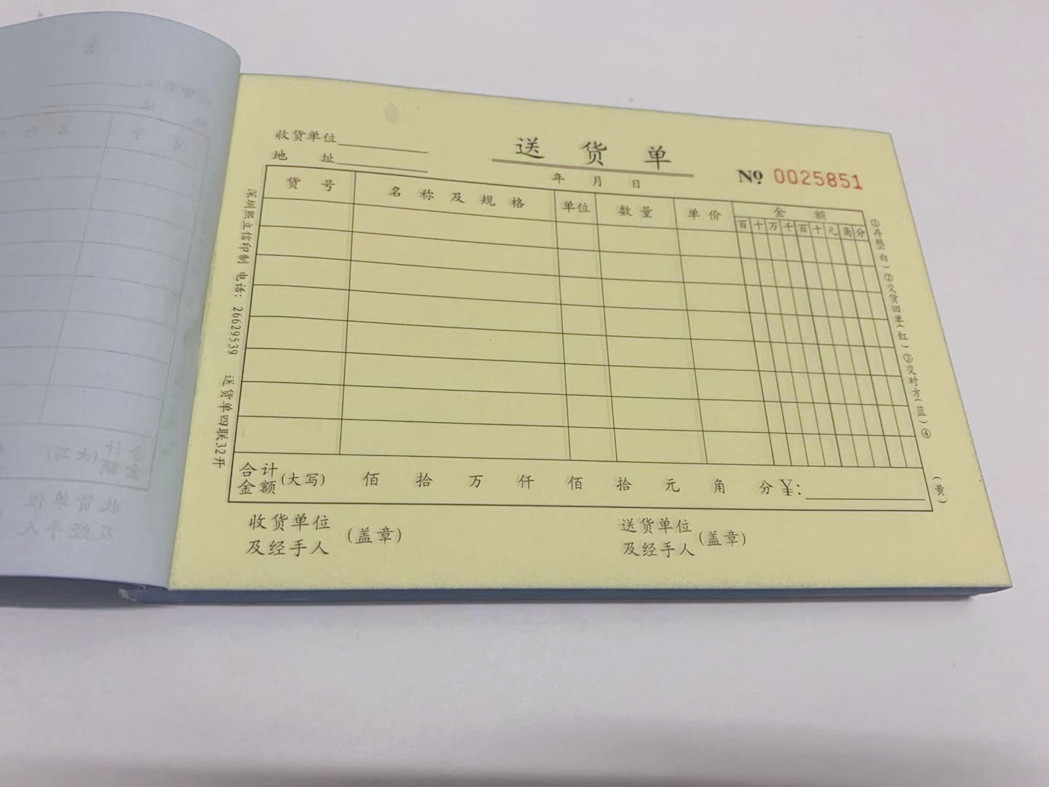 收货单位
送货单
地 址
年 月 日
№ 0025851
货号 名称及规格 单位 数量 单价 金额
百十万千百十元角分
合计金额(大写) 佰 拾 万 仟 佰 拾 元 角 分 ¥:
收货单位及经手人(盖章)
送货单位及经手人(盖章)
深圳熙立信印制 电话: 26629539 送货单四联32开
①存整(白)②交货回单(红)③交对方(蓝)④(黄)